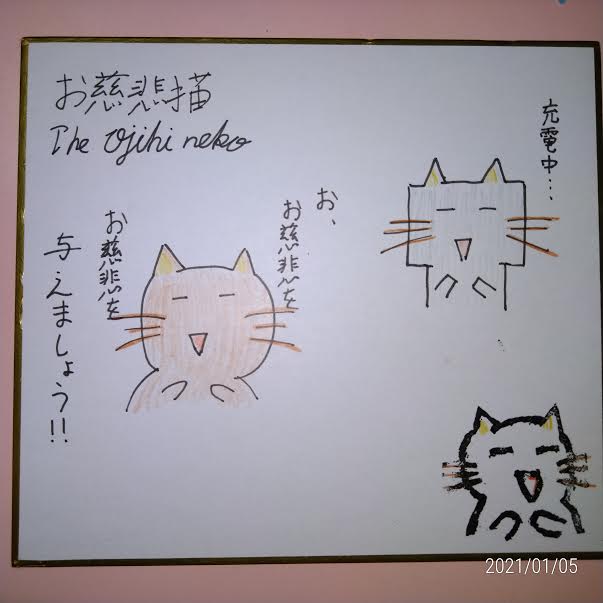 お慈悲描
The Ojihi neko
充電中…
お、
お慈悲を
お慈悲を
与えましょう!!
2021/01/05